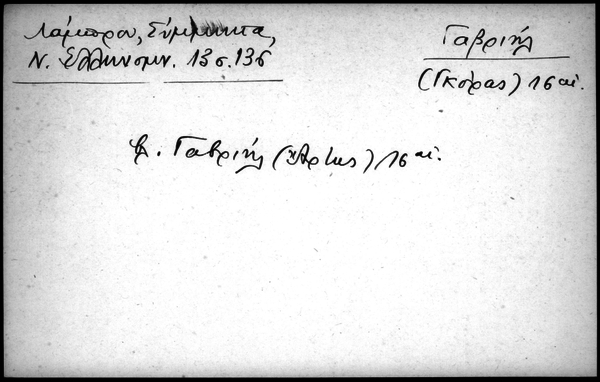 Λάμπρου, Σύμμικτα,
Ν. Ἑλληνομν. 13 σ. 136
Γαβριήλ
(Γκόρας) 16 αἰ.
βλ. Γαβριήλ (Ἄρτης) 16 αἰ.